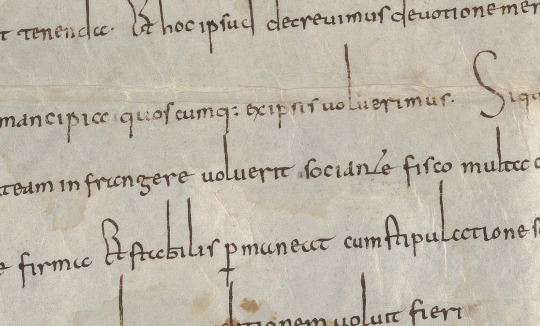 tenenda. Et hoc ipsud decrevimus devotione
mancipia quoscumq: ex ipsis voluerimus. Siqu
team infrangere voluerit sociante fisco multa
e firma Et stabilis pmaneat cum stipulatione
tionem voluit fieri